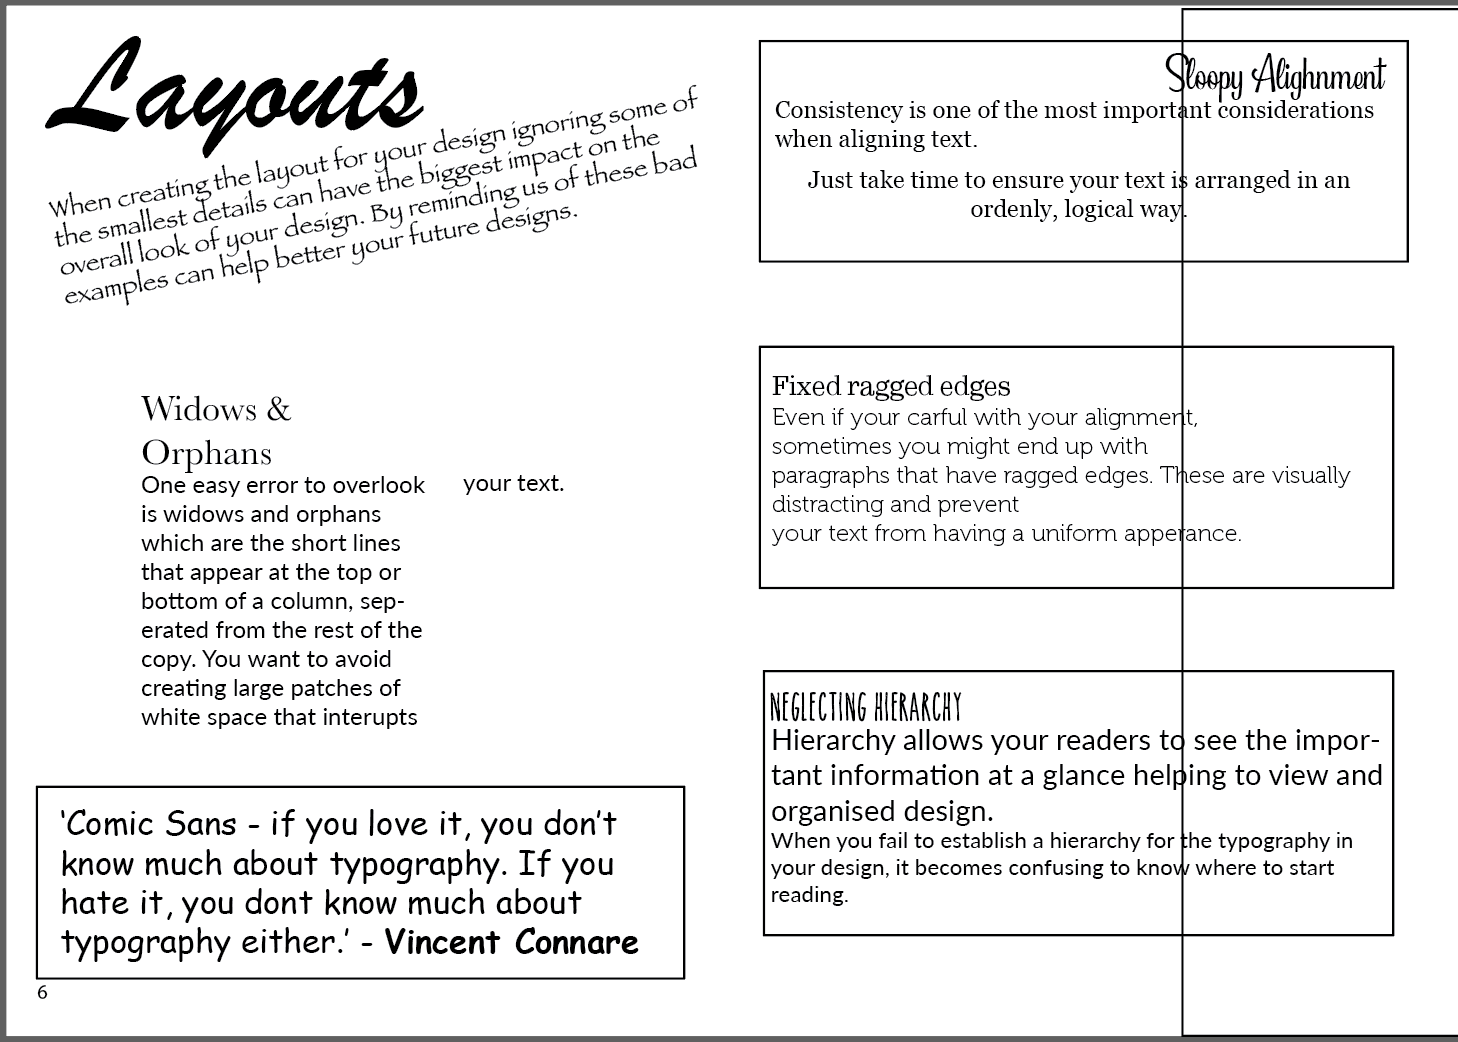 Layouts
When creating the layout for your design ignoring some of
the smallest details can have the biggest impact on the
overall look of your design. By reminding us of these bad
examples can help better your future designs.
Widows &
Orphans
One easy error to overlook
is widows and orphans
which are the short lines
that appear at the top or
bottom of a column, sep-
erated from the rest of the
copy. You want to avoid
creating large patches of
white space that interupts
your text.
‘Comic Sans - if you love it, you don’t
know much about typography. If you
hate it, you dont know much about
typography either.’ - Vincent Connare
6
Sloopy Alighnment
Consistency is one of the most important considerations
when aligning text.
Just take time to ensure your text is arranged in an
ordenly, logical way.
Fixed ragged edges
Even if your carful with your alignment,
sometimes you might end up with
paragraphs that have ragged edges. These are visually
distracting and prevent
your text from having a uniform apperance.
NEGLECTING HIERARCHY
Hierarchy allows your readers to see the impor-
tant information at a glance helping to view and
organised design.
When you fail to establish a hierarchy for the typography in
your design, it becomes confusing to know where to start
reading.